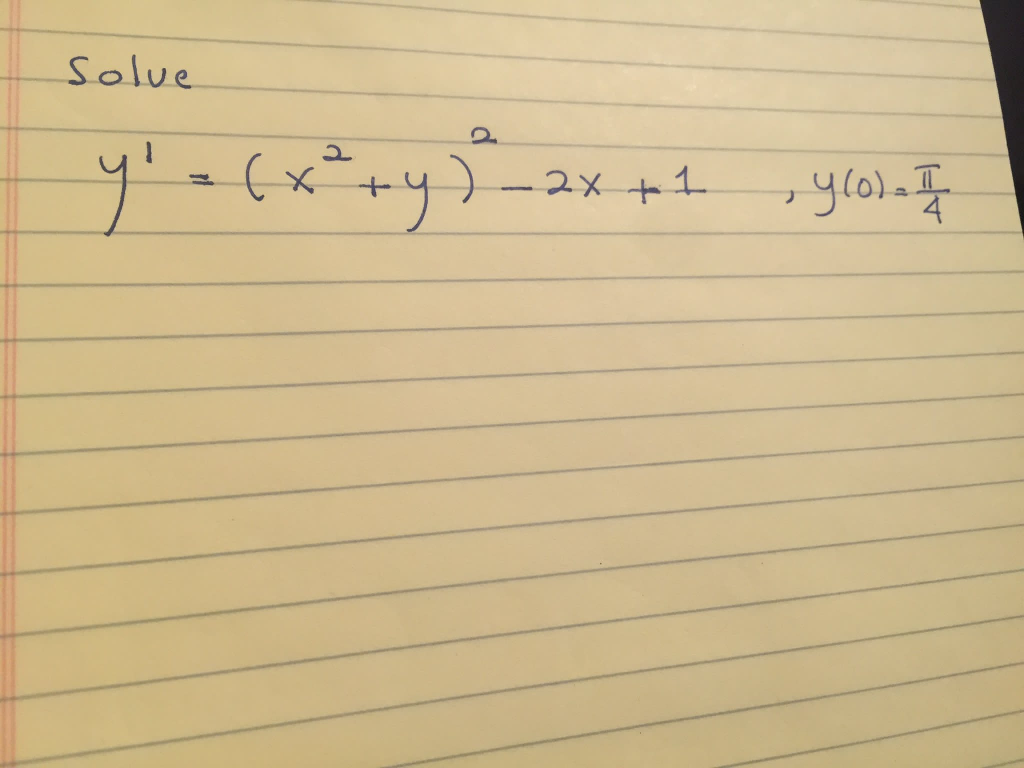 Solve
y' = (x² + y)² - 2x + 1 , y(0) = π/4